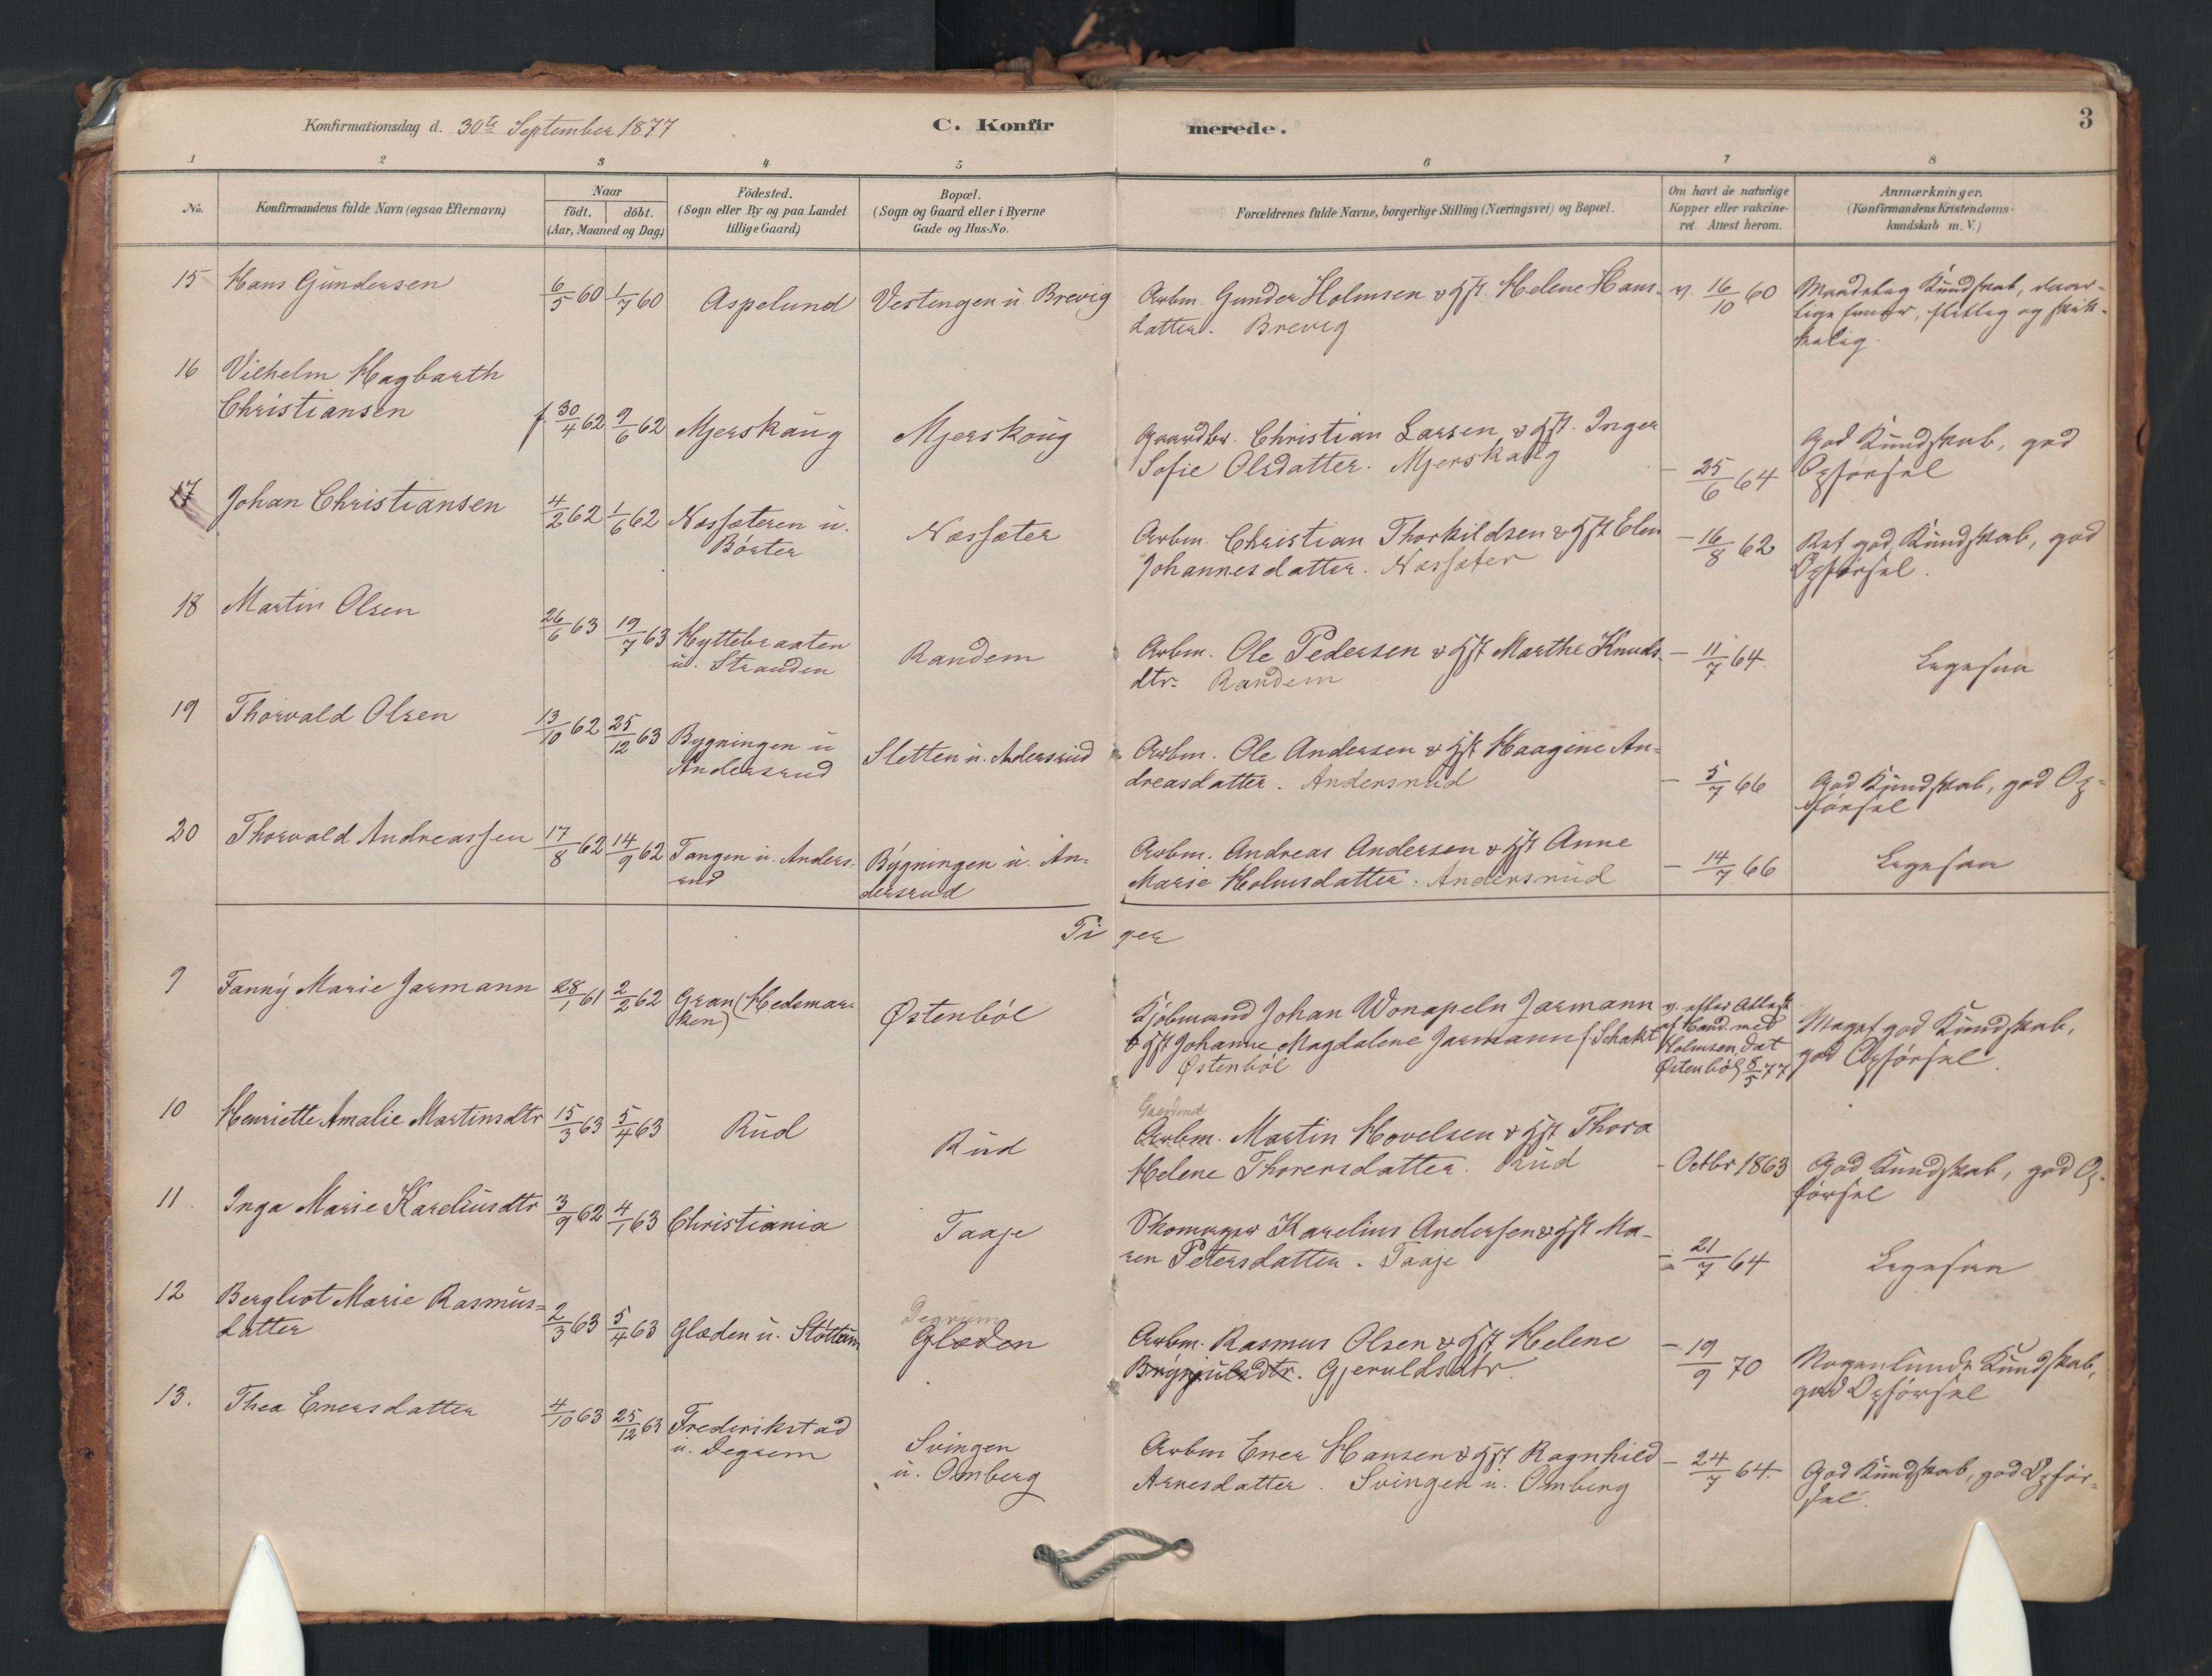 Konfirmationsdag d. 30te September 1877
C. Konfirmerede.
3
1 2 3 4 5 6 7 8
No.
Konfirmandens fulde Navn (ogsaa Efternavn)
Naar
födt. döbt.
(Aar, Maaned og Dag)
Födested.
(Sogn eller By og paa Landet
tillige Gaard)
Bopæl.
(Sogn og Gaard eller i Byerne
Gade og Hus-No.
Forældrenes fulde Navne, borgerlige Stilling (Næringsvei) og Bopæl.
Om havt de naturlige
Kopper eller vakcine-
ret. Attest herom.
Anmærkninger.
(Konfirmandens Kristendoms-
kundskab m. V.)
15 Hans Gundersen 6/5 60 1/7 60 Aspelund Vestengen u. Brevig
Arbm. Gunder Holmsen & Hst. Helene Hans-
datter. Brevig
v. 16/10 60
Maadelig Kundskab, 
flittig og skik-
kelig
16 Vilhelm Hagbarth
Christiansen f. 30/4 62 9/6 62 Mjerskaug Mjerskoug
Gaardbr. Christian Larsen & Hst. Inger
Sofie Olsdatter. Mjerskaug
- 25/6 64
God Kundskab, god
Opførsel
17 Johan Christiansen 4/2 62 1/6 62 Næssæteren u.
Børter
Næssæter
Arbm. Christian Thorkildsen & Hst Elen
Johannesdatter. Næssæter
- 16/8 62
Ret god Kundskab, god
Opførsel.
18 Martin Olsen 26/6 63 19/7 63 Hyttebraaten
u. Stranden
Randem
Arbm. Ole Pedersen & Hst Marthe Knuds-
dtr. Randem
- 11/7 64.
Ligesaa
19 Thorvald Olsen 13/10 62 25/12 63 Bygningen u
Andersrud
Sletten u. Andersrud
Arbm. Ole Andersen & Hst Haagine An-
dreasdatter. Andersrud
- 5/7 66
God Kundskab, god Op-
førsel
20 Thorvald Andreassen 17/8 62 14/9 62 Tangen u. Anders-
rud
Bygningen u. An-
dersrud
Arbm. Andreas Andersen & Hst Anne
Marie Holmsdatter. Andersrud
- 14/7 66
Ligesaa
Piger
9 Fanny Marie Jarmann 28/1 61 2/2 62 Gran (Hedemar-
ken)
Østenbøl
Kjøbmand Johan Wonapeln Jarmann
& Hst Johanne Magdalene Jarmann f. Schakt
Østenbøl
v. efter Attest
af Cand. med
Holmsen, dat
Østenbøl 8/5 77
Meget god Kundskab,
god Opførsel.
10 Henriette Amalie Martinsdtr 15/3 63 5/4 63 Rud Rud
Gaardmd
Arbm. Martin Hovelsen & Hst Thora
Helene Thorersdatter. Rud
- Octbr 1863
God Kundskab, god Op-
førsel
11. Inga Marie Kareliusdtr 3/9 62 4/1 63 Christiania Taaje
Skomager Karelius Andersen & Hst Ma-
ren Petersdatter. Taaje
- 21/7 64
Ligesaa
12 Bergliot Marie Rasmus-
datter 2/3 63 5/4 63 Glæden u. Støttum
Degrum
Glæden
Arbm. Rasmus Olsen & Hst Helene
Brynjulsdtr. Gjeruldsdtr.
- 19/9 70
Nogenlunde Kundskab,
god Opførsel
13. Thea Enersdatter 4/10 63 25/12 63 Frederikstad
u. Degrem
Svingen
u. Omberg
Arbm Ener Hansen & Hst Ragnhild
Arnesdatter. Svingen u. Omberg
- 24/7 64.
God Kundskab, god Opfør-
sel.